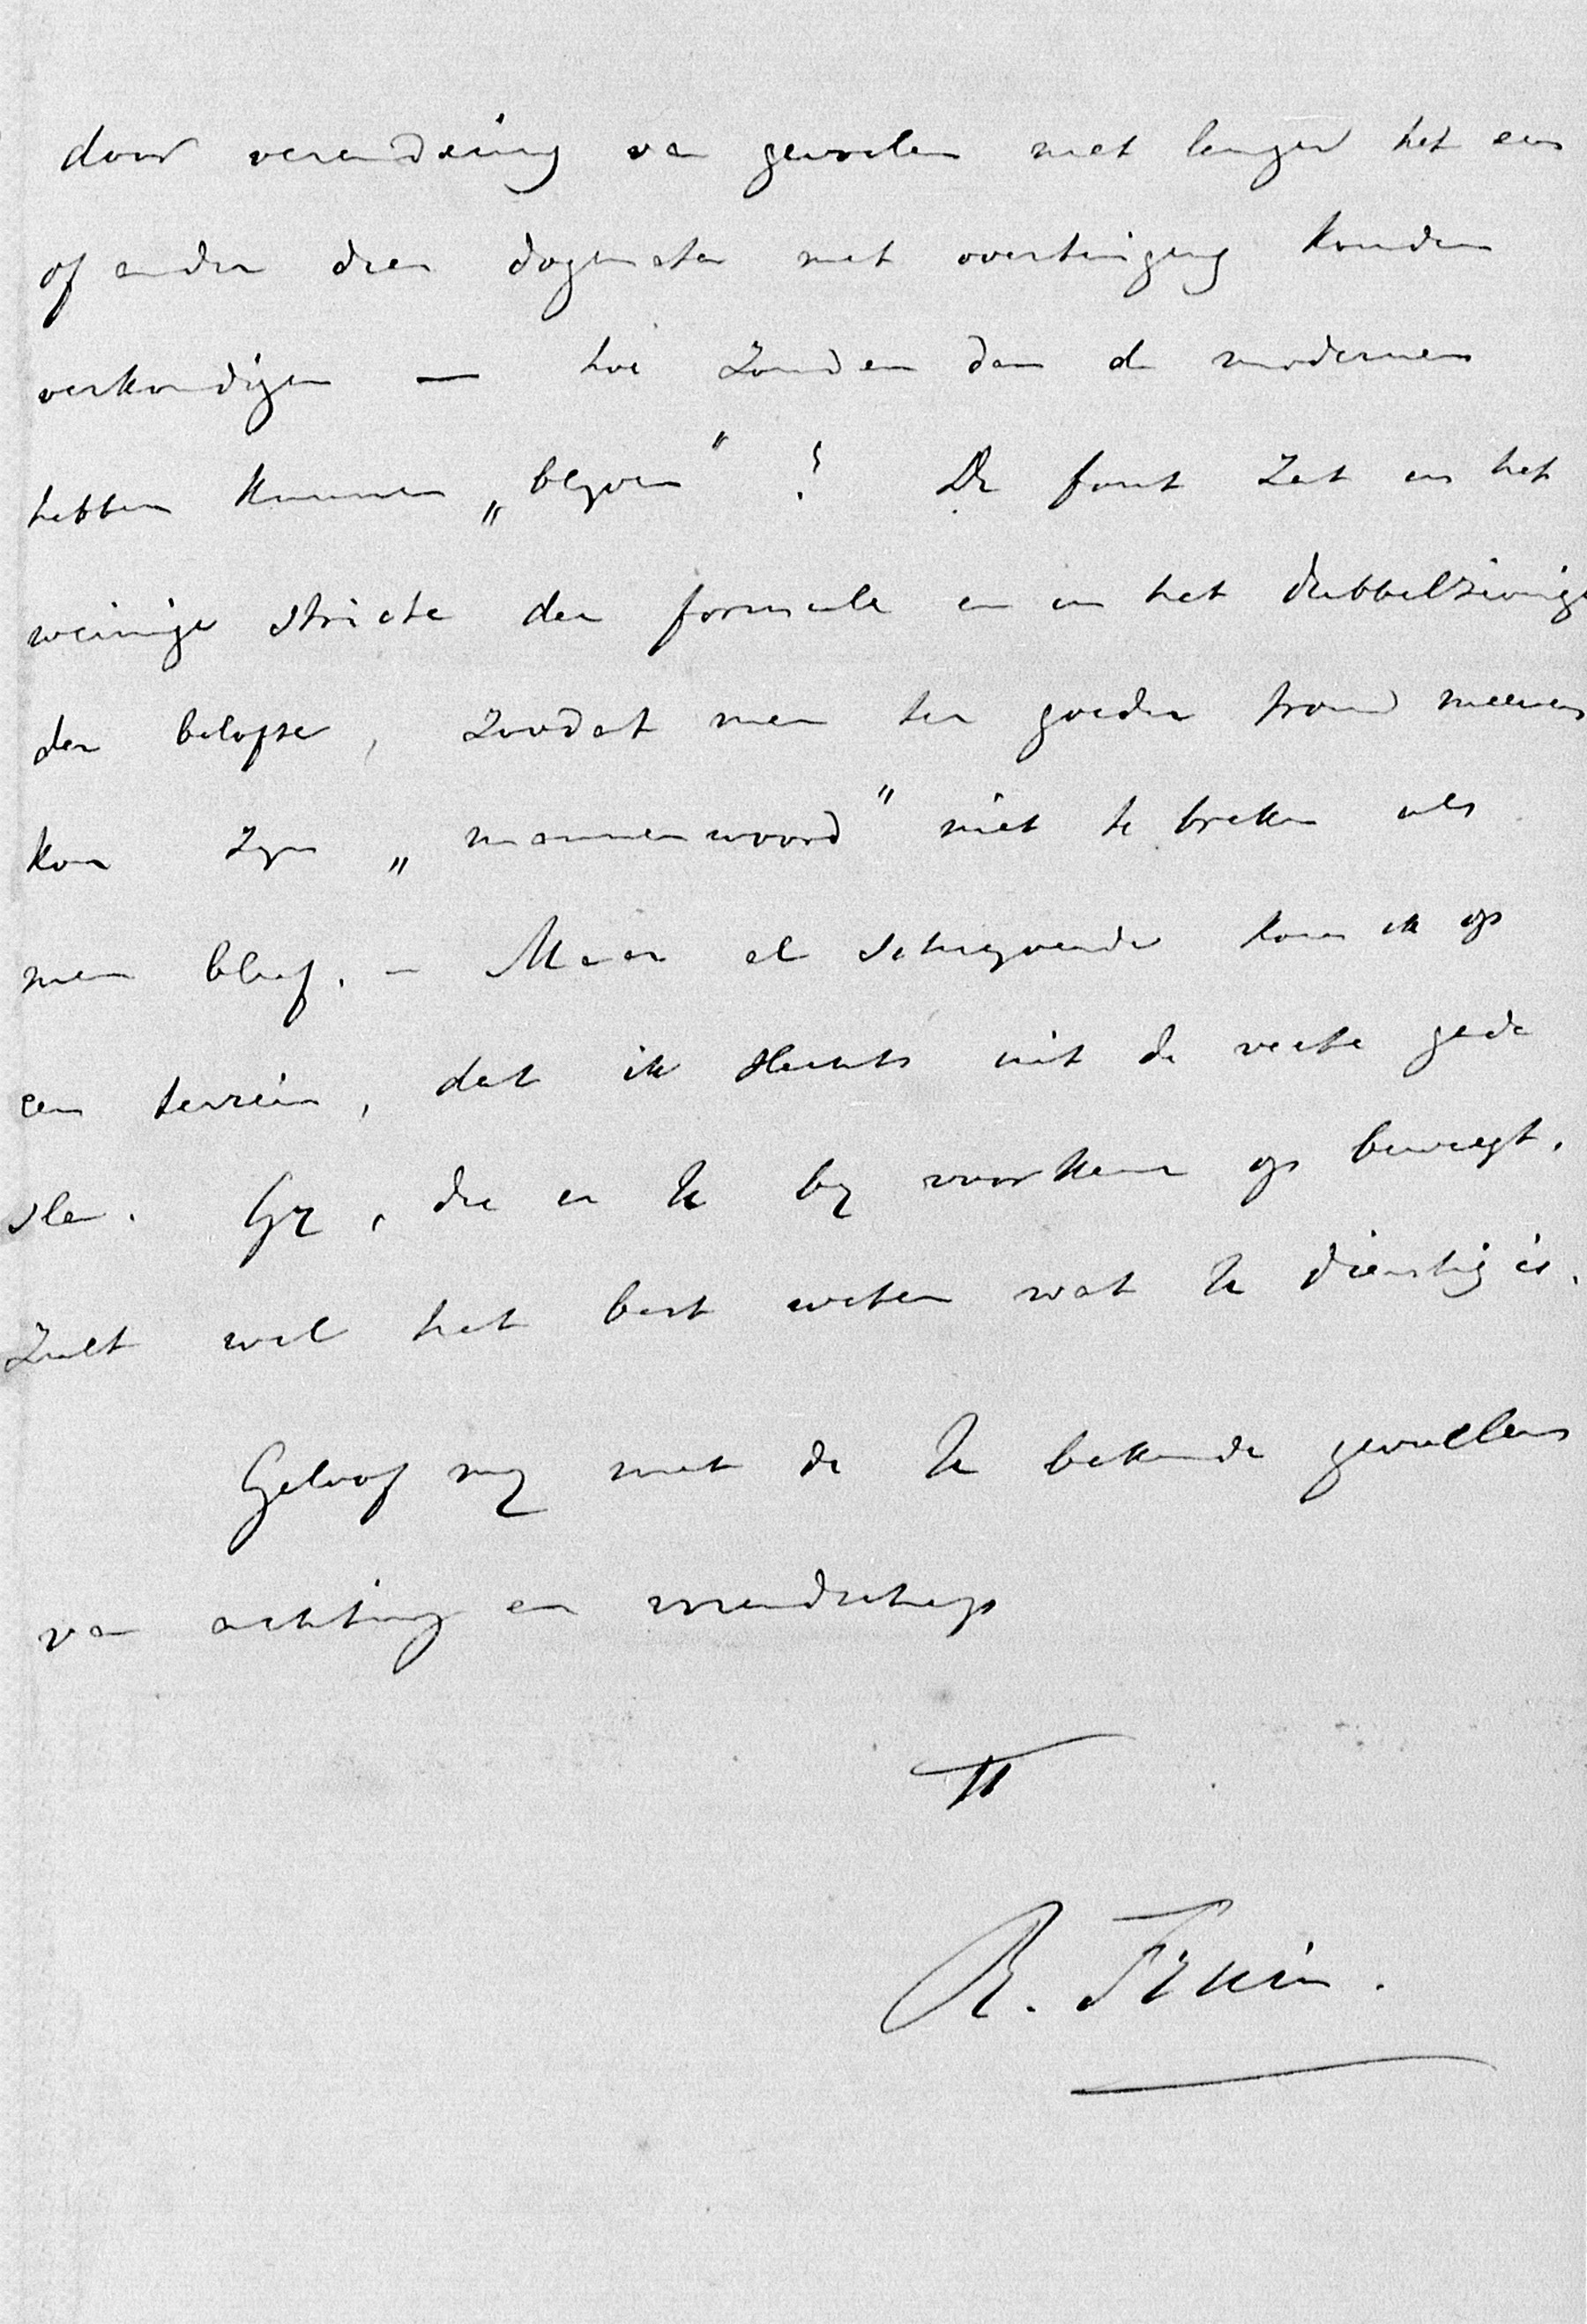 door verandering van gevoelen niet langer het een
of ander dier dogmata met overtuiging konden
verkondigen — hoe zouden dan de modernen
hebben kunnen „blyven" ? De fout zat in het
weinige stricte der formule en in het dubbelzinnige
der belofte, zoodat men ter goeder trouw meenen
kon zyn „mannenwoord" niet te breken als
men bleef. — Maar al schryvende kom ik op
een terrein, dat ik slechts uit de verte gade
sla. Gy, die er U by voorkeur op beweegt,
zult wel het best weten wat U dienstig is.
Geloof my met de U bekende gevoelens
van achting en vriendschap
TT
R. Fruin.